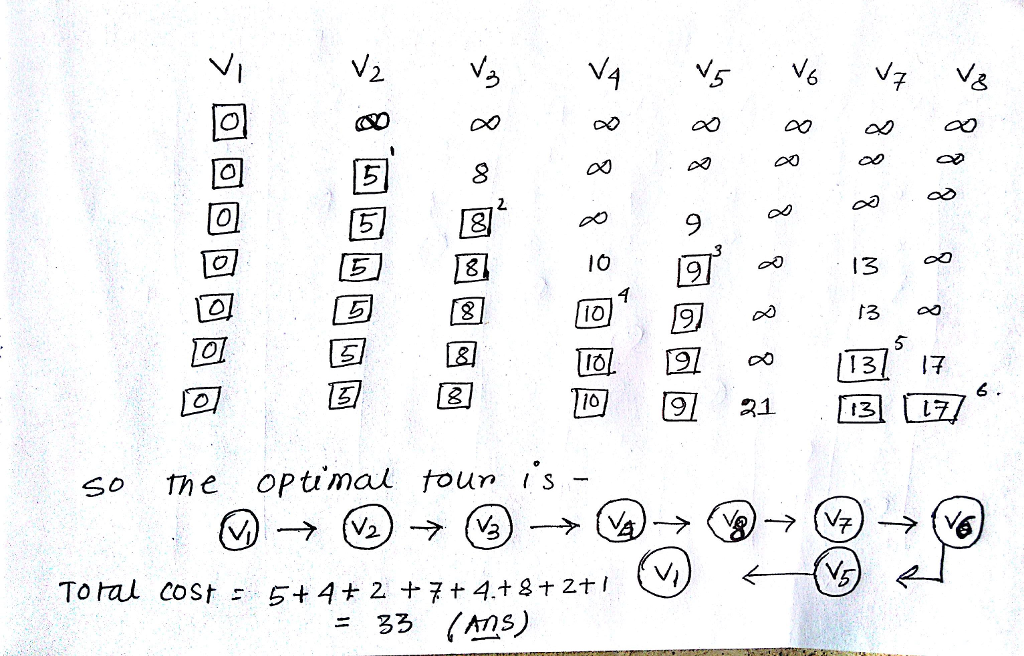 V1 V2 V3 V4 V5 V6 V7 V8
0 ∞ ∞ ∞ ∞ ∞ ∞ ∞
0 5 1 8 ∞ ∞ ∞ ∞ ∞
0 5 8 2 ∞ 9 ∞ ∞ ∞
0 5 8 10 9 3 ∞ 13 ∞
0 5 8 10 4 9 ∞ 13 ∞
0 5 8 10 9 ∞ 13 5 17
0 5 8 10 9 21 13 17 6.
so the optimal tour is -
V1 → V2 → V3 → V4 → V8 → V7 → V6
V1 ← V5 ←
Total cost = 5+4+2+7+4+8+2+1
= 33 (Ans)